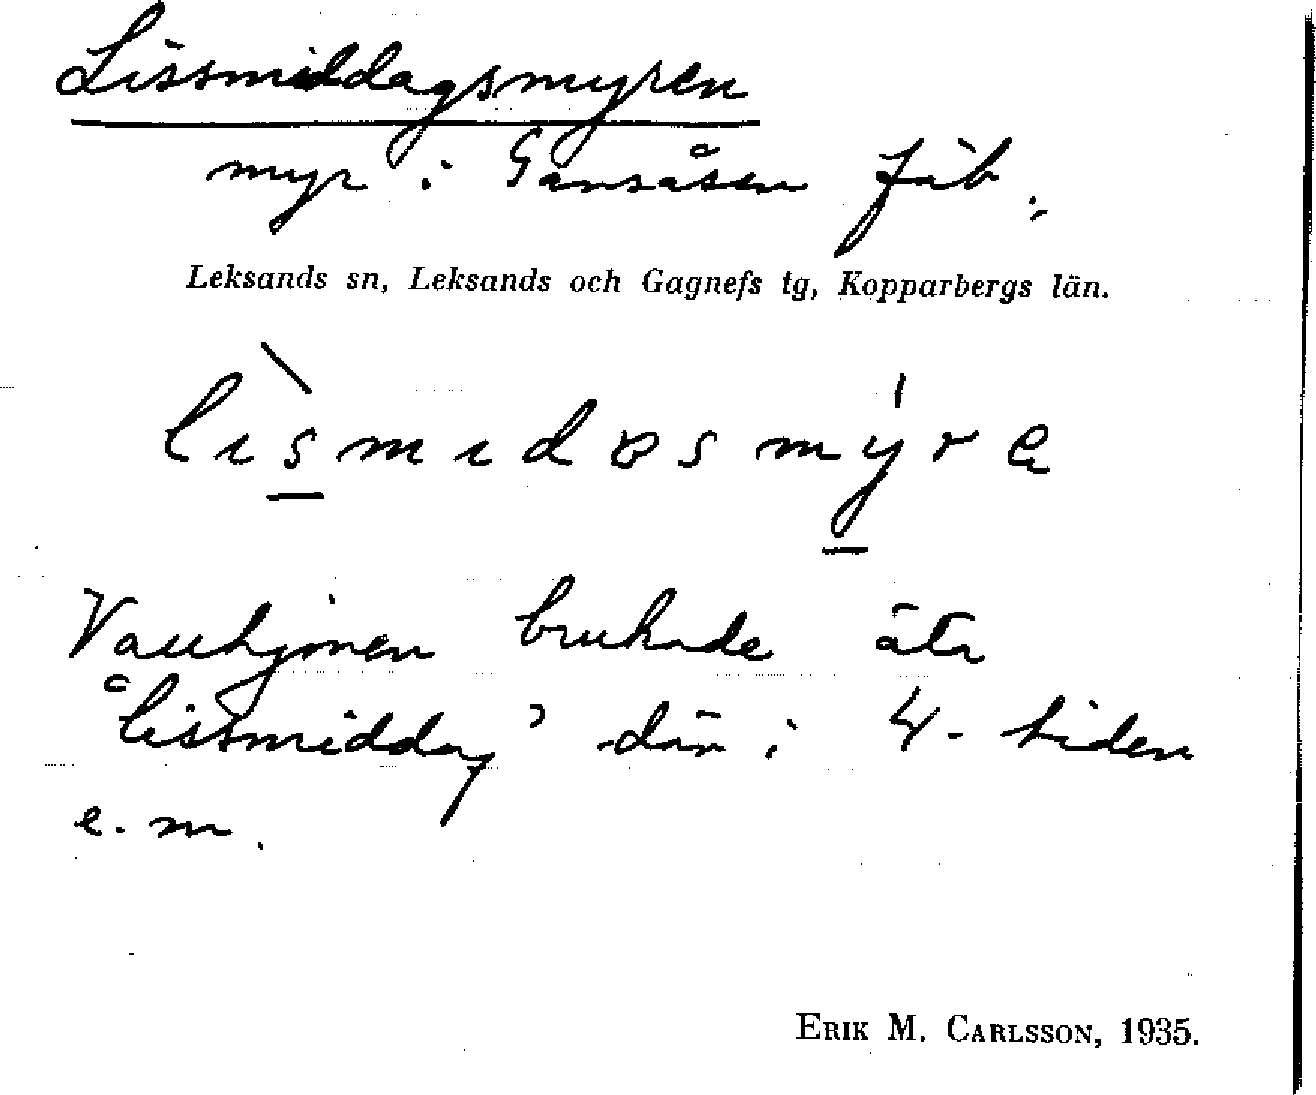 Lissmiddagsmyren
myr i Gansåsen fäb.,
Leksands sn, Leksands och Gagnefs tg, Kopparbergs län.
Vallhjonen brukade äta
"lissmiddag" där i 4-tiden
e.m.
ERIK M. CARLSSON, 1935.